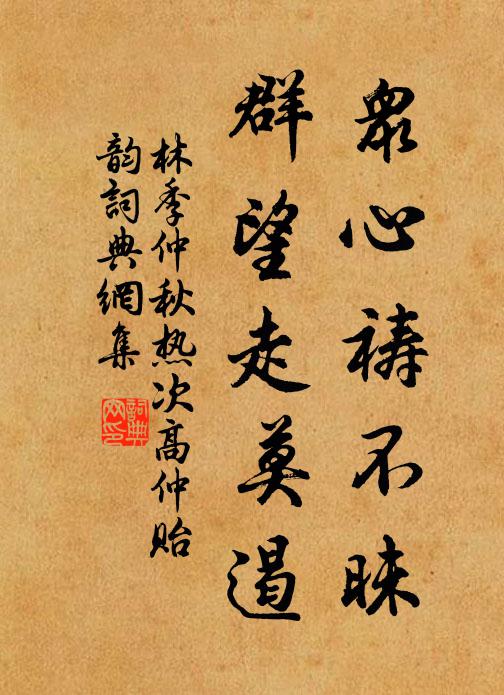 眾心禱不昧
群望走莫遏
林季仲秋热次高仲貽
韵詞典網集
詞典网印